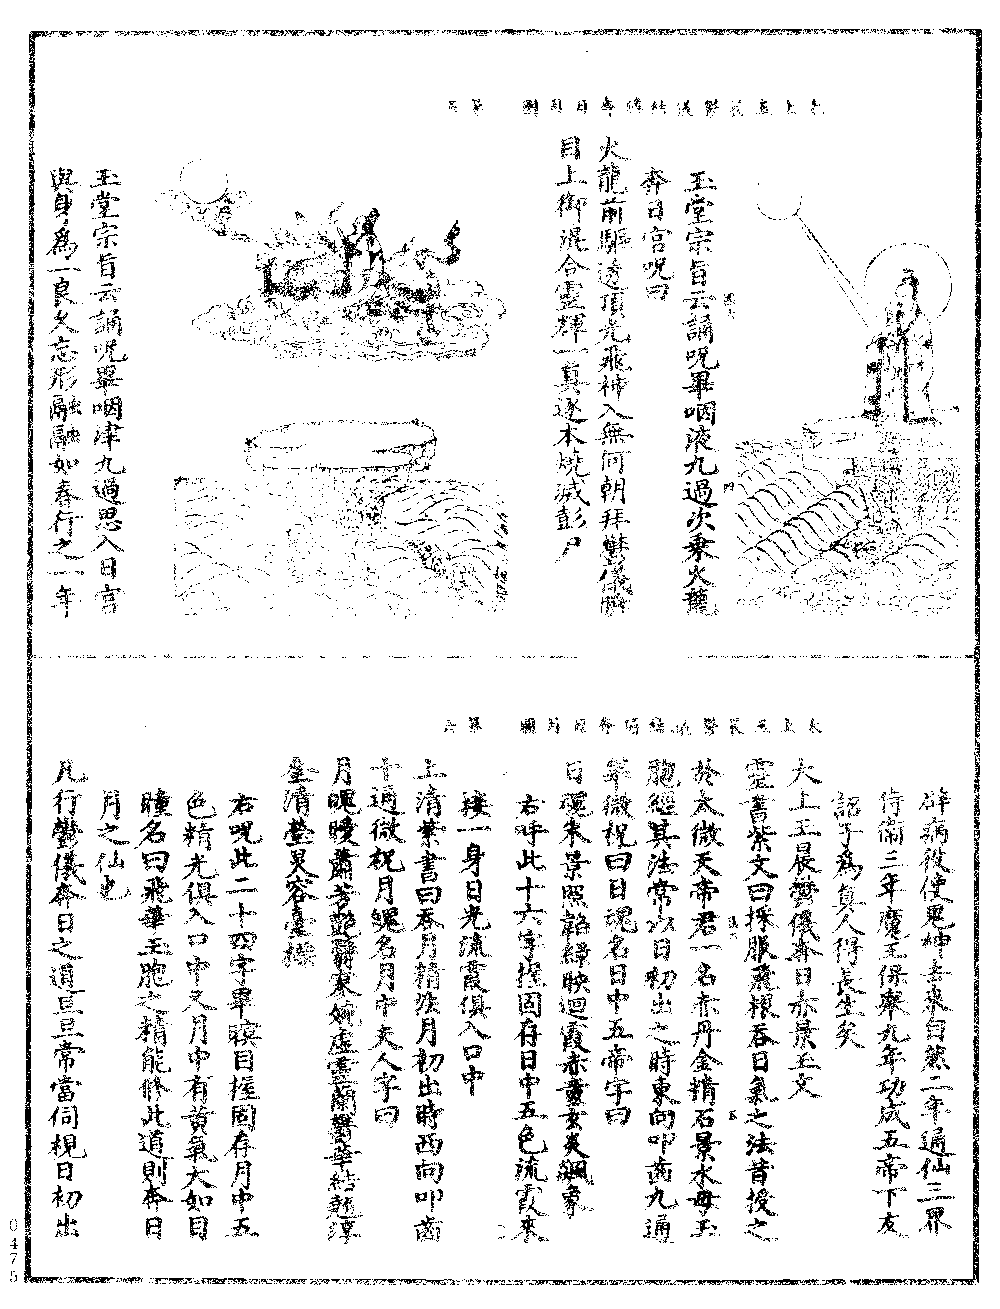 太上玉晨鬱儀結璘奔日月圖　第五
玉堂宗旨云誦呪畢咽液九過次乘火龍
奔日宮呪曰
火龍前驅透頂光飛神入無何朝拜鬱儀
目上御混合靈輝一真逐木燒滅彭尸
玉堂宗旨云誦呪畢咽津九過思入日宮
與身為一良久忘形融融如春行之一年
太上玉晨鬱儀結璘奔日月圖　第六
辟病役使鬼神幸來自然二年通仙三界
侍衛三年魔王保舉九年功成五帝下友
詔子為真人得長生矣
太上玉晨鬱儀奔日赤景玉文
靈書紫文曰採服飛根吞日氣之法昔授之
於太微天帝君一名赤丹金精石景水母玉
胞經其法常以日初出之時東向叩齒九通
畢微祝曰日魂名日中五帝字曰
日魂朱景照韜綠映迴霞赤童玄炎飇象
右呼此十六字握固存日中五色流霞來
接一身日光流霞俱入口中
上清紫書曰吞月精法月初出時西向叩齒
十通微祝月魄名月中夫人字曰
月魄曖蕭芳艷翳寥婉虛靈蘭鬱華結翹淳
金清瑩炅容臺標
右呪此二十四字畢瞑目握固存月中五
色精光俱入口中又月中有黃氣大如目
瞳名曰飛華玉胞之精能修此道則奔日
月之仙也
凡行鬱儀奔日之道旦旦常當伺視日初出
0475